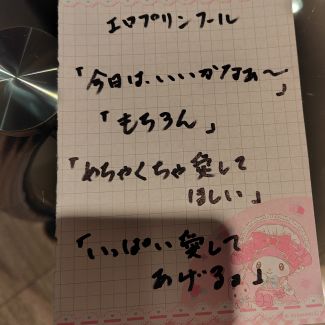 エロプリンクール
「今日は、いいかなぁ〜」
「もちろん」
「めちゃくちゃ愛して
ほしい」
「いっぱい愛して
あげる。」